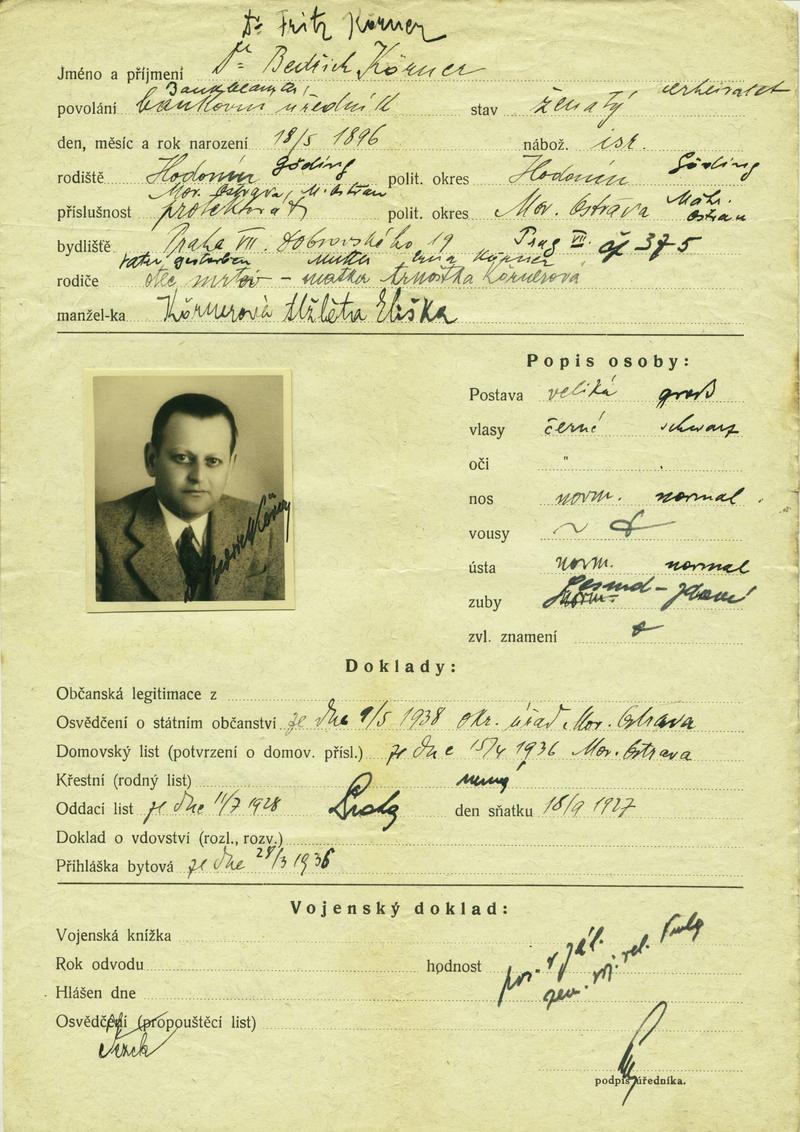 Dr Fritz Körner
Jméno a příjmení Dr Bedřich Körner
Bankbeamter
povolání bankovní úředník stav ženatý verheiratet
den, měsíc a rok narození 18/5 1896 nábož. isr.
rodiště Hodonín Göding polit. okres Hodonín Göding
Mor. Ostrava, M. Ostrau
příslušnost protektorát polit. okres Mor. Ostrava Mähr. Ostrau
bydliště Praha VII. Dobrovského 19 Prag VII čp 375
Vater gestorben Mutter Körner
rodiče otec mrtev – matka Arnoštka Körnerová
manžel-ka Körnerová Alžběta Eliška
Popis osoby:
Postava veliká groß
vlasy černé schwarz
oči "
nos norm. normal
vousy
ústa norm. normal
zuby norm. Gesund – zdravé
zvl. znamení
Doklady:
Občanská legitimace z
Osvědčení o státním občanství ze dne 9/5 1938 okr. úřad Mor. Ostrava
Domovský list (potvrzení o domov. přísl.) ze dne 15/4 1936 Mor. Ostrava
Křestní (rodný list) nemá
Oddací list ze dne 11/7 1928 den sňatku 18/9 1927
Doklad o vdovství (rozl., rozv.)
Přihláška bytová ze dne 28/3 1936
Vojenský doklad:
Vojenská knížka
Rok odvodu hodnost por. v zál.
Hlášen dne zem. voj. vel.
Osvědčení (propouštěcí list)
podpis úředníka.